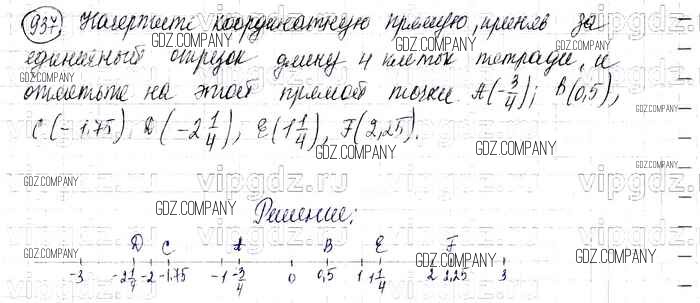 937. Начертите координатную прямую, приняв за
единичный отрезок длину 4 клеток тетради, и
отметьте на этой прямой точки A(-3/4); B(0,5),
C(-1,75) D(-2 1/4), E(1 1/4), F(2,25).
Решение:
D C A B E F
-3 -2 1/4 -2 -1,75 -1 -3/4 0 0,5 1 1 1/4 2 2,25 3
GDZ.COMPANY
GDZ.COMPANY
GDZ.COMPANY
GDZ.COMPANY
GDZ.COMPANY
GDZ.COMPANY
GDZ.COMPANY
GDZ.COMPANY
GDZ.COMPANY
GDZ.COMPANY
GDZ.COMPANY
GDZ.COMPANY
vipgdz.ru
vipgdz.ru
vipgdz.ru
vipgdz.ru